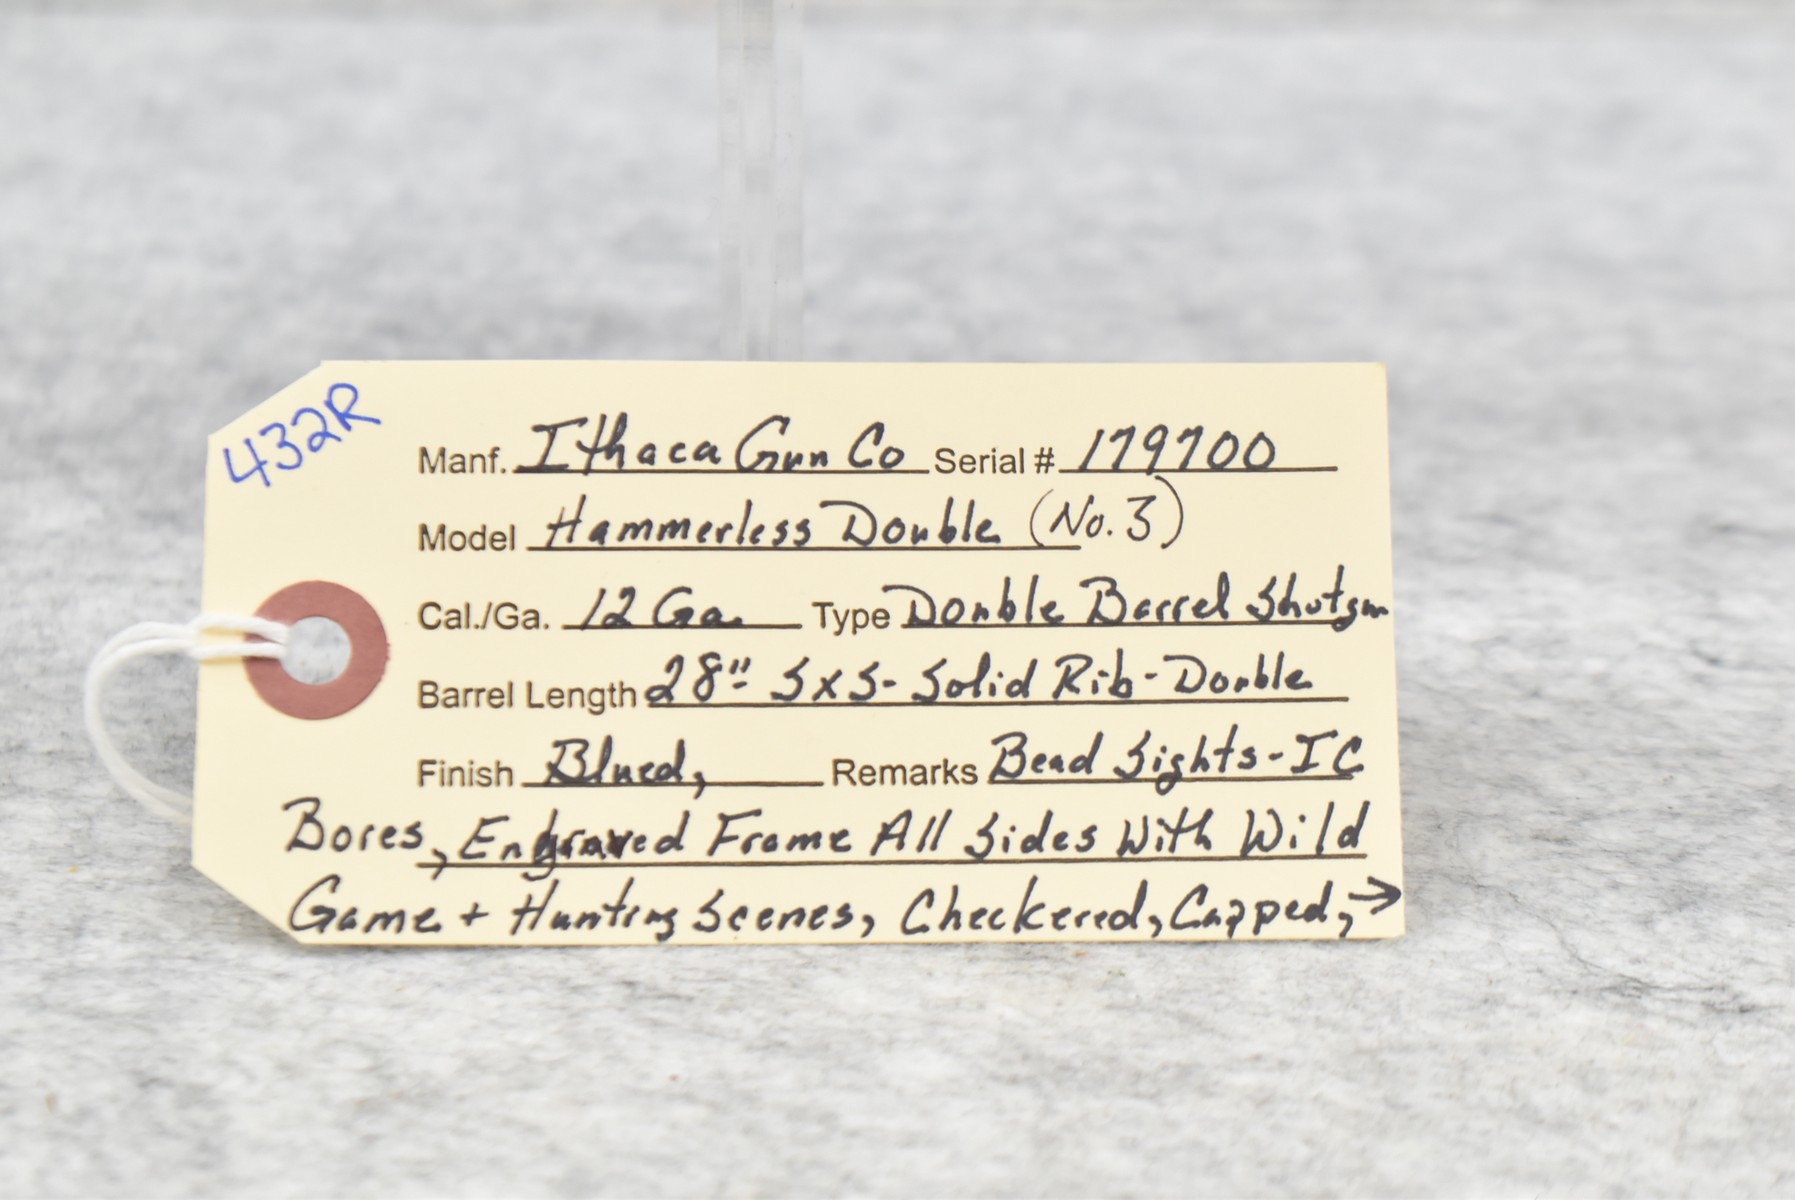 432R
Manf. Ithaca Gun Co Serial # 179700
Model Hammerless Double (No. 3)
Cal./Ga. 12 Ga. Type Double Barrel Shotgun
Barrel Length 28" SxS- Solid Rib- Double
Finish Blued, Remarks Bead Sights - IC
Bores, Engraved Frame All Sides With Wild
Game + Hunting Scenes, Checkered, Capped, →